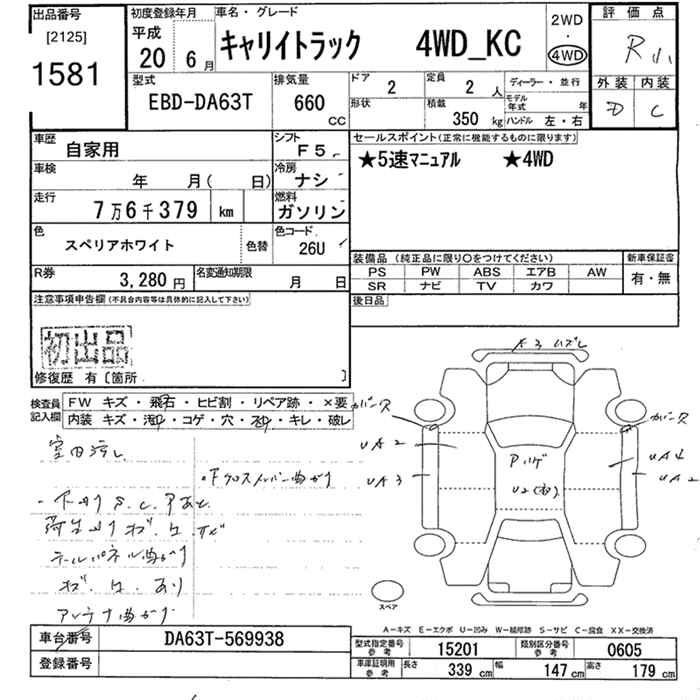 出品番号 初度登録年月 車名・グレード 2WD 評価点
[2125] 平成 キャリイトラック 4WD_KC ・ R
1581 20年 6月 4WD 外装 内装
型式 排気量 ドア 2 定員 2人 ディーラー・並行 D C
EBD-DA63T 660 CC 形状 積載 350 kg モデル年式 年
ハンドル 左・右
車歴 自家用 シフト F5 セールスポイント(正常に機能するものに限ります)
車検 年 月( 日) 冷房 ナシ ★5速マニュアル ★4WD
走行 7万6千379 km 燃料 ガソリン
色 スペリアホワイト 色替 色コード 26U
装備品 (純正品に限り○をつけてください) 新車保証書
PS PW ABS エアB AW 有・無
R券 3,280円 名変通知期限 月 日 SR ナビ TV カワ
注意事項申告欄(不具合内容等は具体的に記入して下さい) 後日品
初出品
修復歴 有〔箇所 〕
A3 ハズレ
検査員記入欄 FW キズ・飛石・ヒビ割・リペア跡・×要
内装 キズ・汚れ・コゲ・穴・スレ・キレ・破レ
UA2 UA3 U2
・下回り S.C.Pあと
荷台
テールパネル曲がり
あり
アンテナ曲がり
スペア
A-キズ E-エクボ U-凹み W-補修跡 S-サビ C-腐食 XX-交換済
車台番号 DA63T-569938 型式指定番号 参考 15201 類別区分番号 参考 0605
登録番号 車庫証明用 参考 長さ 339 cm 幅 147 cm 高さ 179 cm